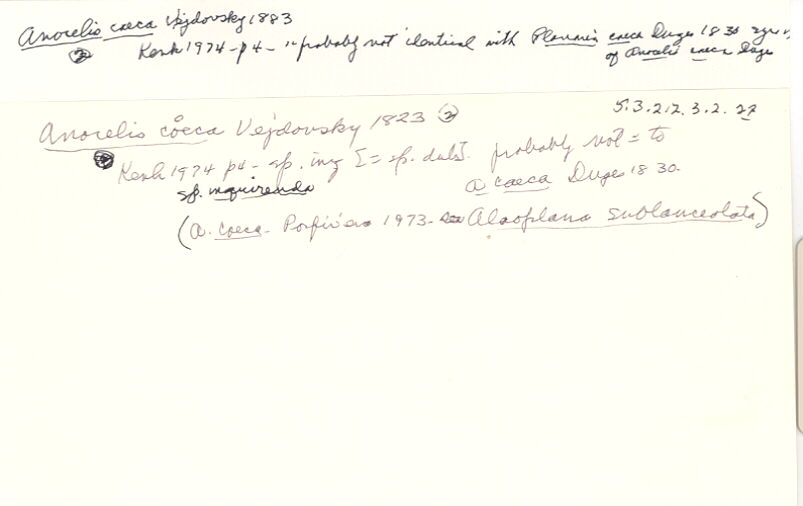 Anocelis coeca Vejdovsky 1883
② Kenk 1974 - p4 - "probably not identical with Planaria caeca Duges 1830
of Anocelis caeca Duges
5.3.2.2.3.2.27
Anocelis cœca Vejdovsky 1823 ②
Kenk 1974 p4 - sp. inq [= sp. dub]. probably not = to
sp. inquirenda a caeca Duges 1830.
(A. coeca - Porfir'eva 1973 - Alaoplana sublanceolata)